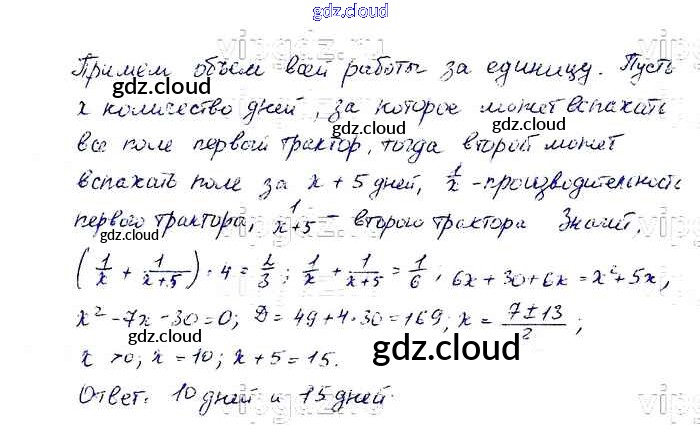 gdz.cloud
Примем объем всей работы за единицу. Пусть
x количество дней, за которое может вспахать
все поле первый трактор, тогда второй может
вспахать поле за x + 5 дней, 1/x - производительность
первого трактора, 1/(x+5) - второго трактора Значит,
(1/x + 1/(x+5)) · 4 = 2/3; 1/x + 1/(x+5) = 1/6, 6x + 30 + 6x = x² + 5x,
x² - 7x - 30 = 0; D = 49 + 4·30 = 169; x = (7 ± 13)/2;
x > 0; x = 10; x + 5 = 15.
Ответ. 10 дней и 15 дней.